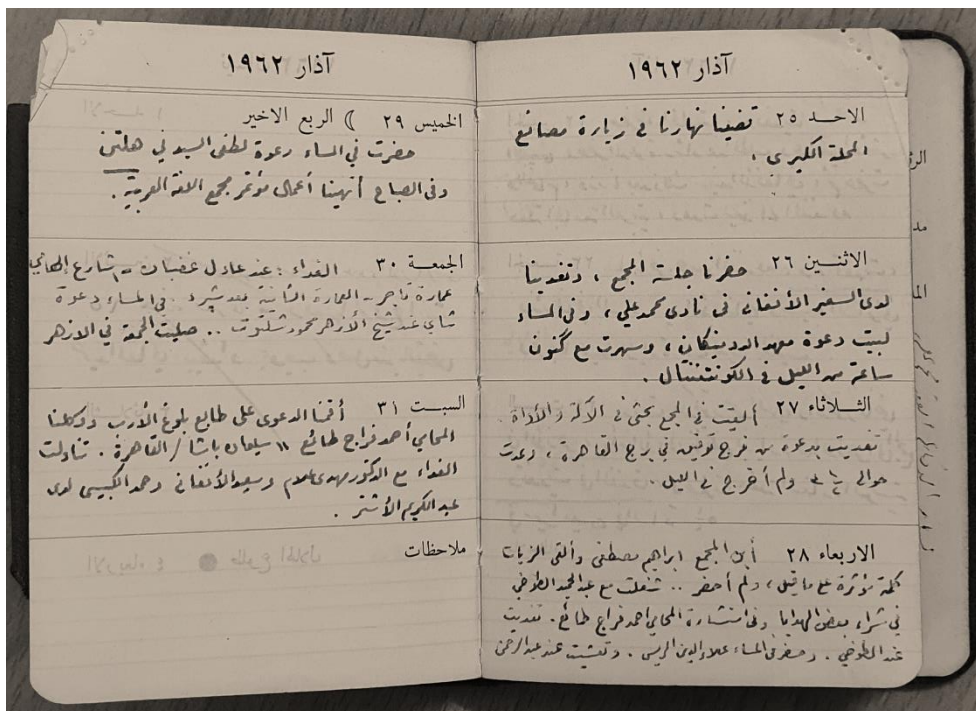 آذار ١٩٦٢
الاحد ٢٥ قضينا نهارنا في زيارة مصانع
المحلة الكبرى .
الاثنين ٢٦ حضرنا جلسة المجمع ، وتغدينا
لدى السفير الأفغاني في نادي محمد علي ، وفي المساء
لبيت دعوة معهد الدومنيكان ، وسهرت مع كنون
ساعة من الليل في الكونتننتال .
الثلاثاء ٢٧ ألقيت في المجمع بحثي في الآلة والأداة .
تغديت بدعوة من فرج توفيق في برج القاهرة ، وعدت
حوالي ولم أخرج في الليل .
الاربعاء ٢٨ أبن المجمع ابراهيم مصطفى وألقى الزيات
كلمة مؤثرة على ما قيل ، ولم أحضر .. شغلت مع عبد الحميد الطوخي
في شراء بعض الهدايا وفي استشارة المحامي احمد فراج طائع . تغديت
عند الطوخي . وحضر في المساء علاء الدين الريس . وتعشيت عند عبد الرحمن
آذار ١٩٦٢
الخميس ٢٩ الربع الاخير
حضرت في المساء دعوة لطفي السيد في هلتن
وفي الصباح أنهينا أعمال مؤتمر مجمع اللغة العربية .
الجمعة ٣٠ الغداء : عند عادل غضبان - شارع
عمارة - العمارة الثانية بعد . في المساء دعوة
شاي عند شيخ الأزهر محمود شلتوت .. صليت الجمعة في الازهر
السبت ٣١ أقمنا الدعوى على طابع بلوغ الأرب ووكلنا
المحامي أحمد فراج طائع ١١ سليمان باشا / القاهرة . تناولت
الغداء مع الدكتور مهدي علام وسعيد الأفغاني وحمد الكبيسي لدى
عبد الكريم الأشتر .
ملاحظات